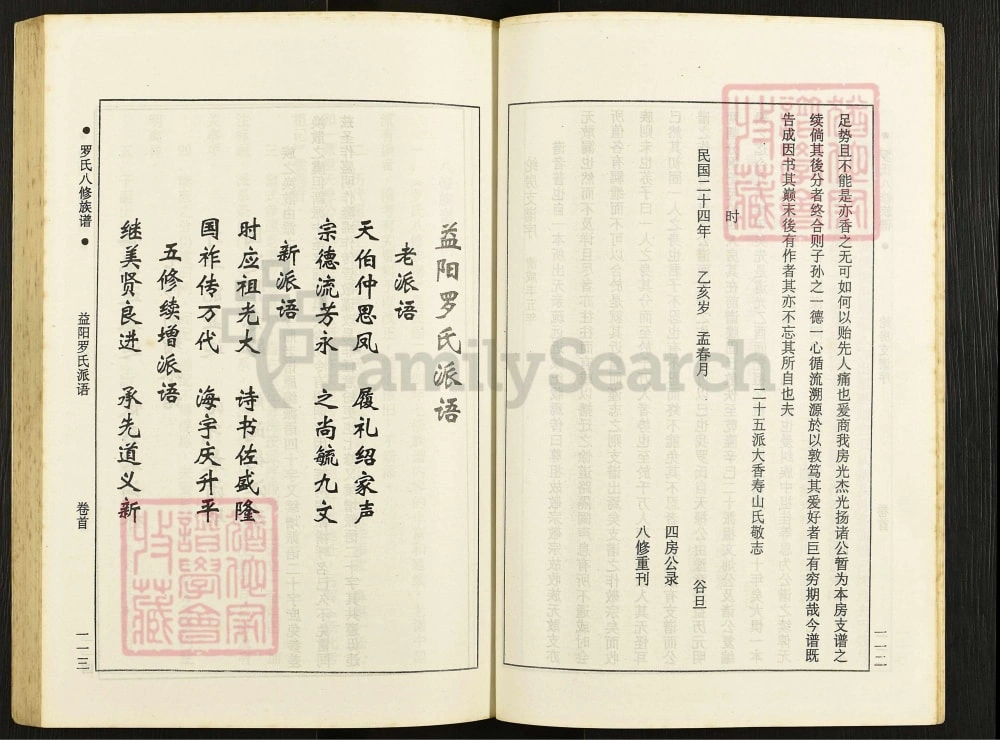 足势且不能是亦香之无可如何以贻先人痛也爰商我房光杰光扬诸公暂为本房支谱之
续倘其後分者终合则子孙之一德一心循流溯源於以敦笃其爱好者巨有穷期哉今谱既
告成因书其巅末後有作者其亦不忘其所自也夫
二十五派大香寿山氏敬志
时
民国二十四年 乙亥岁 孟春月 谷旦
四房公录
八修重刊
一一二
益阳罗氏派语
老派语
天伯仲思凤 履礼绍家声
宗德流芳永 之尚毓九文
新派语
时应祖光大 诗书佐盛隆
国祚传万代 海宇庆升平
五修续增派语
继美贤良进 承先道义新
• 罗氏八修族谱 • 益阳罗氏派语 卷首 一一三
FamilySearch